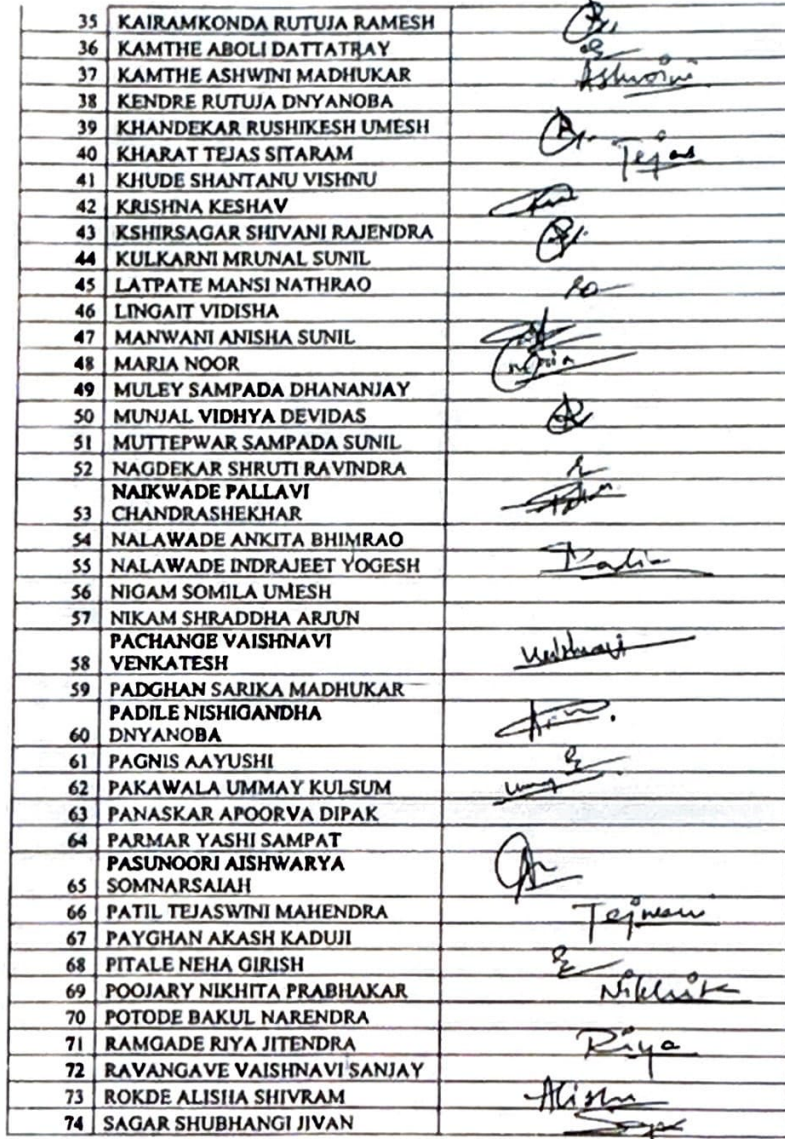 35 KAIRAMKONDA RUTUJA RAMESH
36 KAMTHE ABOLI DATTATRAY
37 KAMTHE ASHWINI MADHUKAR Ashwini
38 KENDRE RUTUJA DNYANOBA
39 KHANDEKAR RUSHIKESH UMESH
40 KHARAT TEJAS SITARAM Tejas
41 KHUDE SHANTANU VISHNU
42 KRISHNA KESHAV
43 KSHIRSAGAR SHIVANI RAJENDRA
44 KULKARNI MRUNAL SUNIL
45 LATPATE MANSI NATHRAO
46 LINGAIT VIDISHA
47 MANWANI ANISHA SUNIL
48 MARIA NOOR
49 MULEY SAMPADA DHANANJAY
50 MUNJAL VIDHYA DEVIDAS
51 MUTTEPWAR SAMPADA SUNIL
52 NAGDEKAR SHRUTI RAVINDRA
NAIKWADE PALLAVI
53 CHANDRASHEKHAR
54 NALAWADE ANKITA BHIMRAO
55 NALAWADE INDRAJEET YOGESH
56 NIGAM SOMILA UMESH
57 NIKAM SHRADDHA ARJUN
PACHANGE VAISHNAVI
58 VENKATESH
59 PADGHAN SARIKA MADHUKAR
PADILE NISHIGANDHA
60 DNYANOBA
61 PAGNIS AAYUSHI
62 PAKAWALA UMMAY KULSUM
63 PANASKAR APOORVA DIPAK
64 PARMAR YASHI SAMPAT
PASUNOORI AISHWARYA
65 SOMNARSAIAH
66 PATIL TEJASWINI MAHENDRA
67 PAYGHAN AKASH KADUJI
68 PITALE NEHA GIRISH
69 POOJARY NIKHITA PRABHAKAR Nikhita
70 POTODE BAKUL NARENDRA
71 RAMGADE RIYA JITENDRA Riya
72 RAVANGAVE VAISHNAVI SANJAY
73 ROKDE ALISHA SHIVRAM Alisha
74 SAGAR SHUBHANGI JIVAN